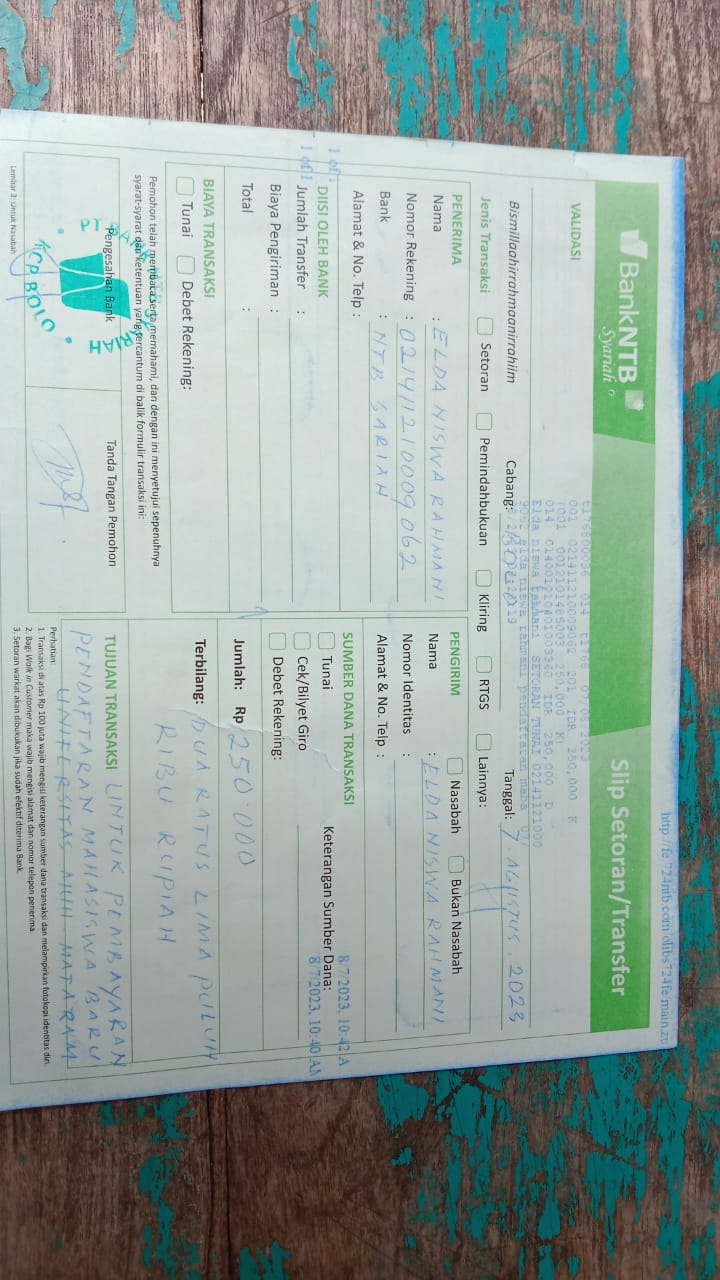 http://fe.724ntb.com/olibs724fe/main.zu
BankNTB
Syariah
Slip Setoran/Transfer
VALIDASI
001 021411210009062 201 IDR 250,000 K
Elda niswa rahmani SETORAN TUNAI 02141121000
9062 elda niswa rahmani pendaftaran maba
Bismillaahirrahmaanirrahiim
Cabang: BOLO
Tanggal: 7. AGUSTUS. 2023
Jenis Transaksi Setoran Pemindahbukuan Kliring RTGS Lainnya:
PENERIMA
Nama : ELDA NISWA RAHMANI
Nomor Rekening : 021411210009062
Bank : NTB SARIAH
Alamat & No. Telp :
PENGIRIM Nasabah Bukan Nasabah
Nama : ELDA NISWA RAHMANI
Nomor Identitas :
Alamat & No. Telp :
1 of 1
1 of 1
8/7/2023, 10:42 A
8/7/2023, 10:40 AM
DIISI OLEH BANK
Jumlah Transfer :
Biaya Pengiriman :
Total :
SUMBER DANA TRANSAKSI
Tunai
Cek/Bilyet Giro
Debet Rekening:
Keterangan Sumber Dana:
BIAYA TRANSAKSI
Tunai Debet Rekening:
Jumlah: Rp 250.000
Terbilang: DUA RATUS LIMA PULUH
RIBU RUPIAH
Pemohon telah membaca serta memahami, dan dengan ini menyetujui sepenuhnya
syarat-syarat dan ketentuan yang tercantum di balik formulir transaksi ini:
Pengesahan Bank
KCP BOLO
Tanda Tangan Pemohon
TUJUAN TRANSAKSI UNTUK PEMBAYARAN
PENDAFTARAN MAHASISWA BARU
UNIFERSITAS MUH MATARAM
Perhatian:
1. Transaksi di atas Rp 100 juta wajib mengisi keterangan sumber dana transaksi dan melampirkan fotokopi identitas diri
2. Bagi Walk in Customer maka wajib mengisi alamat dan nomor telepon penerima.
3. Setoran warkat akan dibukukan jika sudah efektif diterima Bank.
Lembar 3: Untuk Nasabah